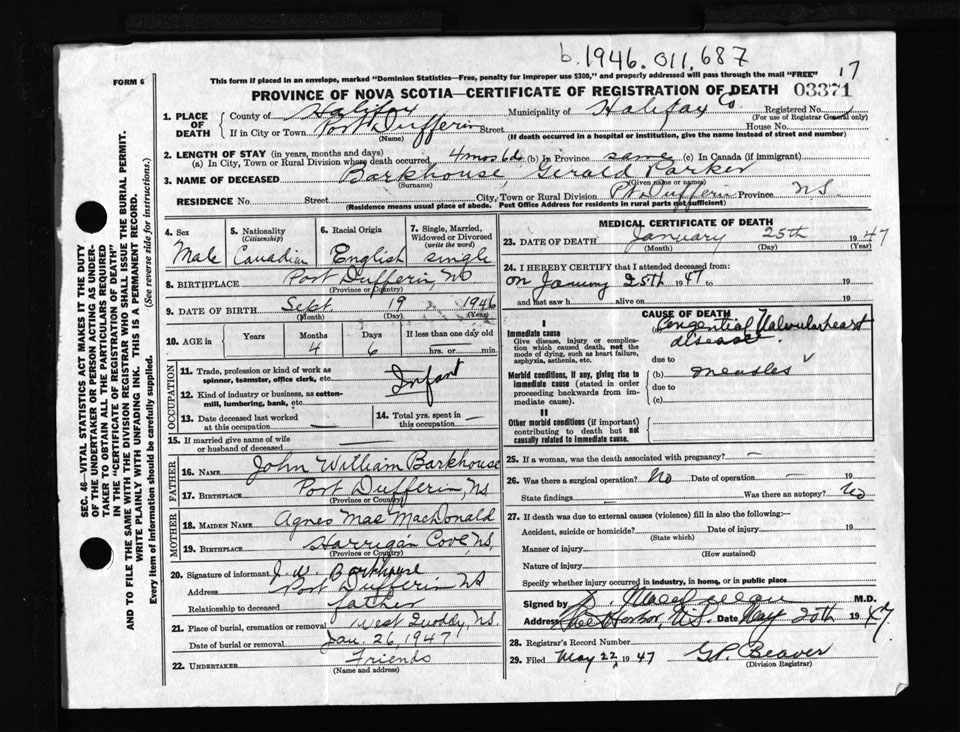 b. 1946. 011, 687
17
FORM 6
This form if placed in an envelope, marked "Dominion Statistics—Free, penalty for improper use $300," and properly addressed will pass through the mail "FREE"
PROVINCE OF NOVA SCOTIA—CERTIFICATE OF REGISTRATION OF DEATH 03371
1. PLACE OF DEATH
County of Halifax Municipality of Halifax Co. Registered No.
(For use of Registrar General only)
If in City or Town Port Dufferin Street House No.
(Name) (If death occurred in a hospital or institution, give the name instead of street and number)
2. LENGTH OF STAY (in years, months and days)
(a) In City, Town or Rural Division where death occurred 4 mos 6 d. (b) In Province same (c) In Canada (if immigrant)
3. NAME OF DECEASED Barkhouse, Gerald Parker
(Surname) (Given name or names)
RESIDENCE No. Street City, Town or Rural Division Pt. Dufferin Province N.S.
(Residence means usual place of abode. Post Office Address for residents in rural parts not sufficient)
4. Sex 5. Nationality (Citizenship) 6. Racial Origin 7. Single, Married, Widowed or Divorced (write the word)
Male Canadian English single
8. BIRTHPLACE Port Dufferin, NS
(Province or Country)
9. DATE OF BIRTH Sept. 19 1946
(Month) (Day) (Year)
10. AGE in Years Months Days If less than one day old
4 6 hrs. or min.
OCCUPATION
11. Trade, profession or kind of work as spinner, teamster, office clerk, etc.
Infant
12. Kind of industry or business, as cotton-mill, lumbering, bank, etc.
13. Date deceased last worked at this occupation
14. Total yrs. spent in this occupation
15. If married give name of wife or husband of deceased
FATHER
16. NAME John William Barkhouse
17. BIRTHPLACE Port Dufferin, N.S.
(Province or Country)
MOTHER
18. MAIDEN NAME Agnes Mae MacDonald
19. BIRTHPLACE Harrigan Cove, N.S.
(Province or Country)
20. Signature of informant J. W. Barkhouse
Address Port Dufferin NS
Relationship to deceased father
21. Place of burial, cremation or removal West Quoddy, N.S.
Date of burial or removal Jan. 26 1947
22. UNDERTAKER Friends
(Name and address)
MEDICAL CERTIFICATE OF DEATH
23. DATE OF DEATH January 25th 1947
(Month) (Day)
24. I HEREBY CERTIFY that I attended deceased from:
on January 25th 1947 to 19
and last saw h alive on 19
CAUSE OF DEATH
I
Immediate cause
Give disease, injury or complication which caused death, not the mode of dying, such as heart failure, asphyxia, asthenia, etc.
(a) Congential Valvularheart disease.
due to
Morbid conditions, if any, giving rise to immediate cause (stated in order proceeding backwards from immediate cause).
(b) measles
due to
(c)
II
Other morbid conditions (if important) contributing to death but not causally related to immediate cause.
25. If a woman, was the death associated with pregnancy?
26. Was there a surgical operation? No Date of operation 19
State findings Was there an autopsy? No
27. If death was due to external causes (violence) fill in also the following:—
Accident, suicide or homicide? Date of injury 19
(State which)
Manner of injury
(How sustained)
Nature of injury
Specify whether injury occurred in industry, in home, or in public place
Signed by M.D.
Address Harbor, N.S. Date May 20th 1947
28. Registrar's Record Number
29. Filed May 22, 1947 G.P. Beaver
(Division Registrar)
SEC. 46—VITAL STATISTICS ACT MAKES IT THE DUTY
OF THE UNDERTAKER OR PERSON ACTING AS UNDER-
TAKER TO OBTAIN ALL THE PARTICULARS REQUIRED
IN THE "CERTIFICATE OF REGISTRATION OF DEATH"
AND TO FILE THE SAME WITH THE DIVISION REGISTRAR WHO SHALL ISSUE THE BURIAL PERMIT.
WRITE PLAINLY WITH UNFADING INK. THIS IS A PERMANENT RECORD.
Every item of information should be carefully supplied. (See reverse side for instructions.)